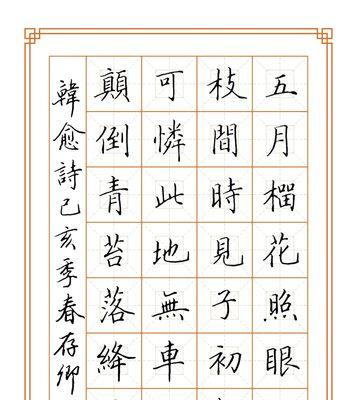 五月榴花照眼
枝間時見子初
可憐此地無車
顛倒青苔落絳
韓愈詩己亥季春存卿